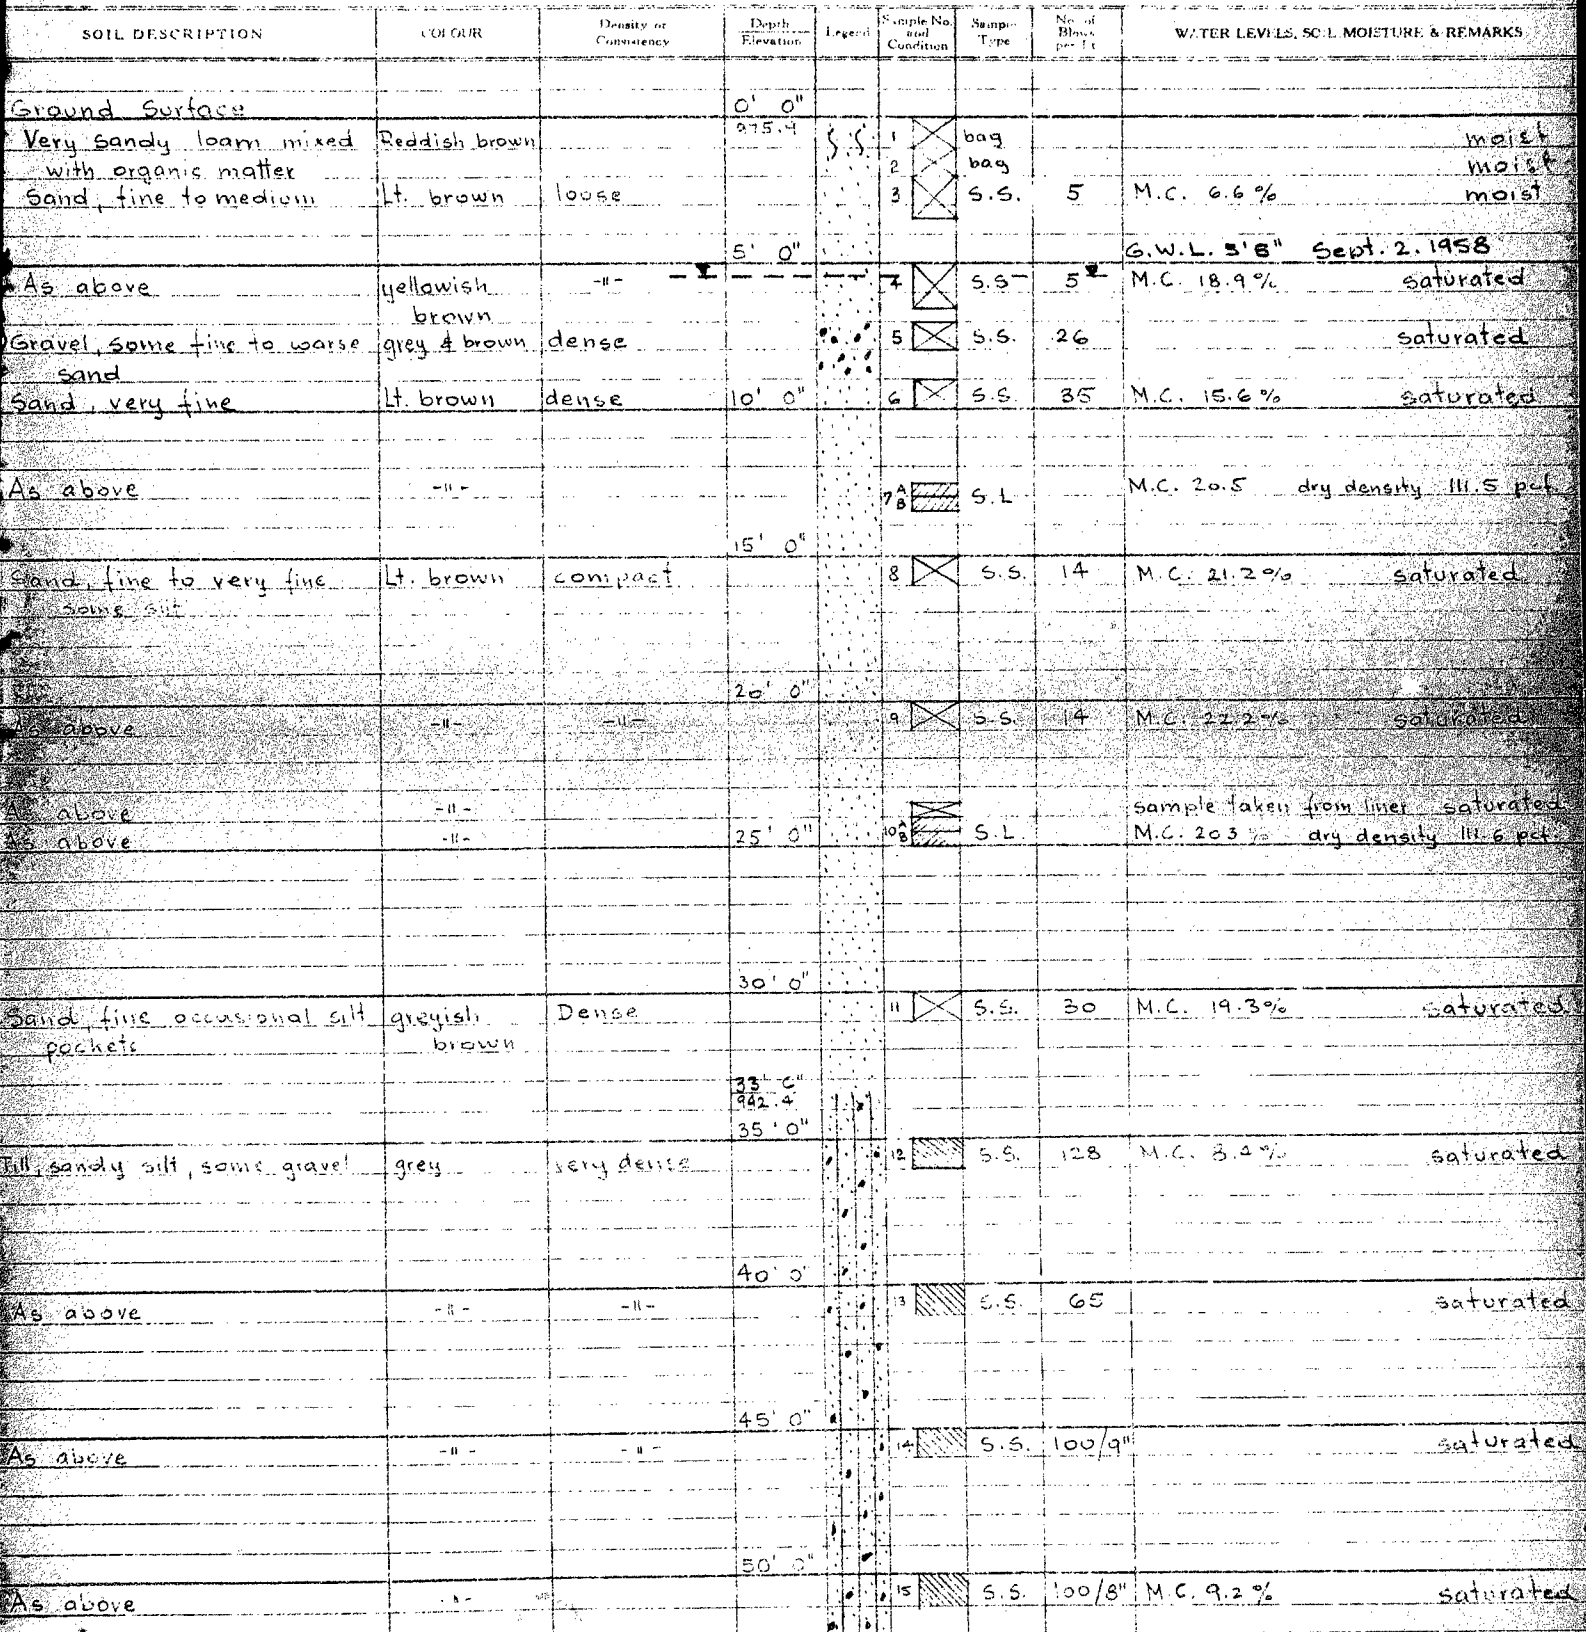 SOIL DESCRIPTION COLOUR Density or Consistency Depth Elevation Legend Sample No. and Condition Sample Type No. of Blows per Ft. WATER LEVELS, SOIL MOISTURE & REMARKS
Ground Surface 0' 0"
975.4
Very sandy loam mixed Reddish brown 1 bag moist
with organic matter 2 bag moist
Sand, fine to medium Lt. brown loose 3 S.S. 5 M.C. 6.6% moist
5' 0" G.W.L. 5'8" Sept. 2. 1958
As above yellowish -"- 4 S.S 5 M.C. 18.9% saturated
brown
Gravel, some fine to coarse grey & brown dense 5 S.S. 26 saturated
sand
Sand, very fine Lt. brown dense 10' 0" 6 S.S. 35 M.C. 15.6% saturated
As above -"- 7 A B S.L M.C. 20.5 dry density 111.5 pcf.
15' 0"
Sand, fine to very fine Lt. brown compact 8 S.S. 14 M.C. 21.2% saturated
some silt
20' 0"
As above -"- -"- 9 S.S. 14 M.C. 22.2% saturated
As above -"- sample taken from liner saturated
As above -"- 25' 0" 10 A B S.L M.C. 20.3% dry density 111.6 pcf.
30' 0"
Sand, fine occasional silt greyish Dense 11 S.S. 30 M.C. 19.3% saturated
pockets brown
33' 0"
942.4
35' 0"
Till, sandy silt, some gravel grey very dense 12 S.S. 128 M.C. 8.4% saturated
40' 0"
As above -"- -"- 13 S.S. 65 saturated
45' 0"
As above -"- -"- 14 S.S. 100/9" saturated
50' 0"
As above -"- 15 S.S. 100/8" M.C. 9.2% saturated